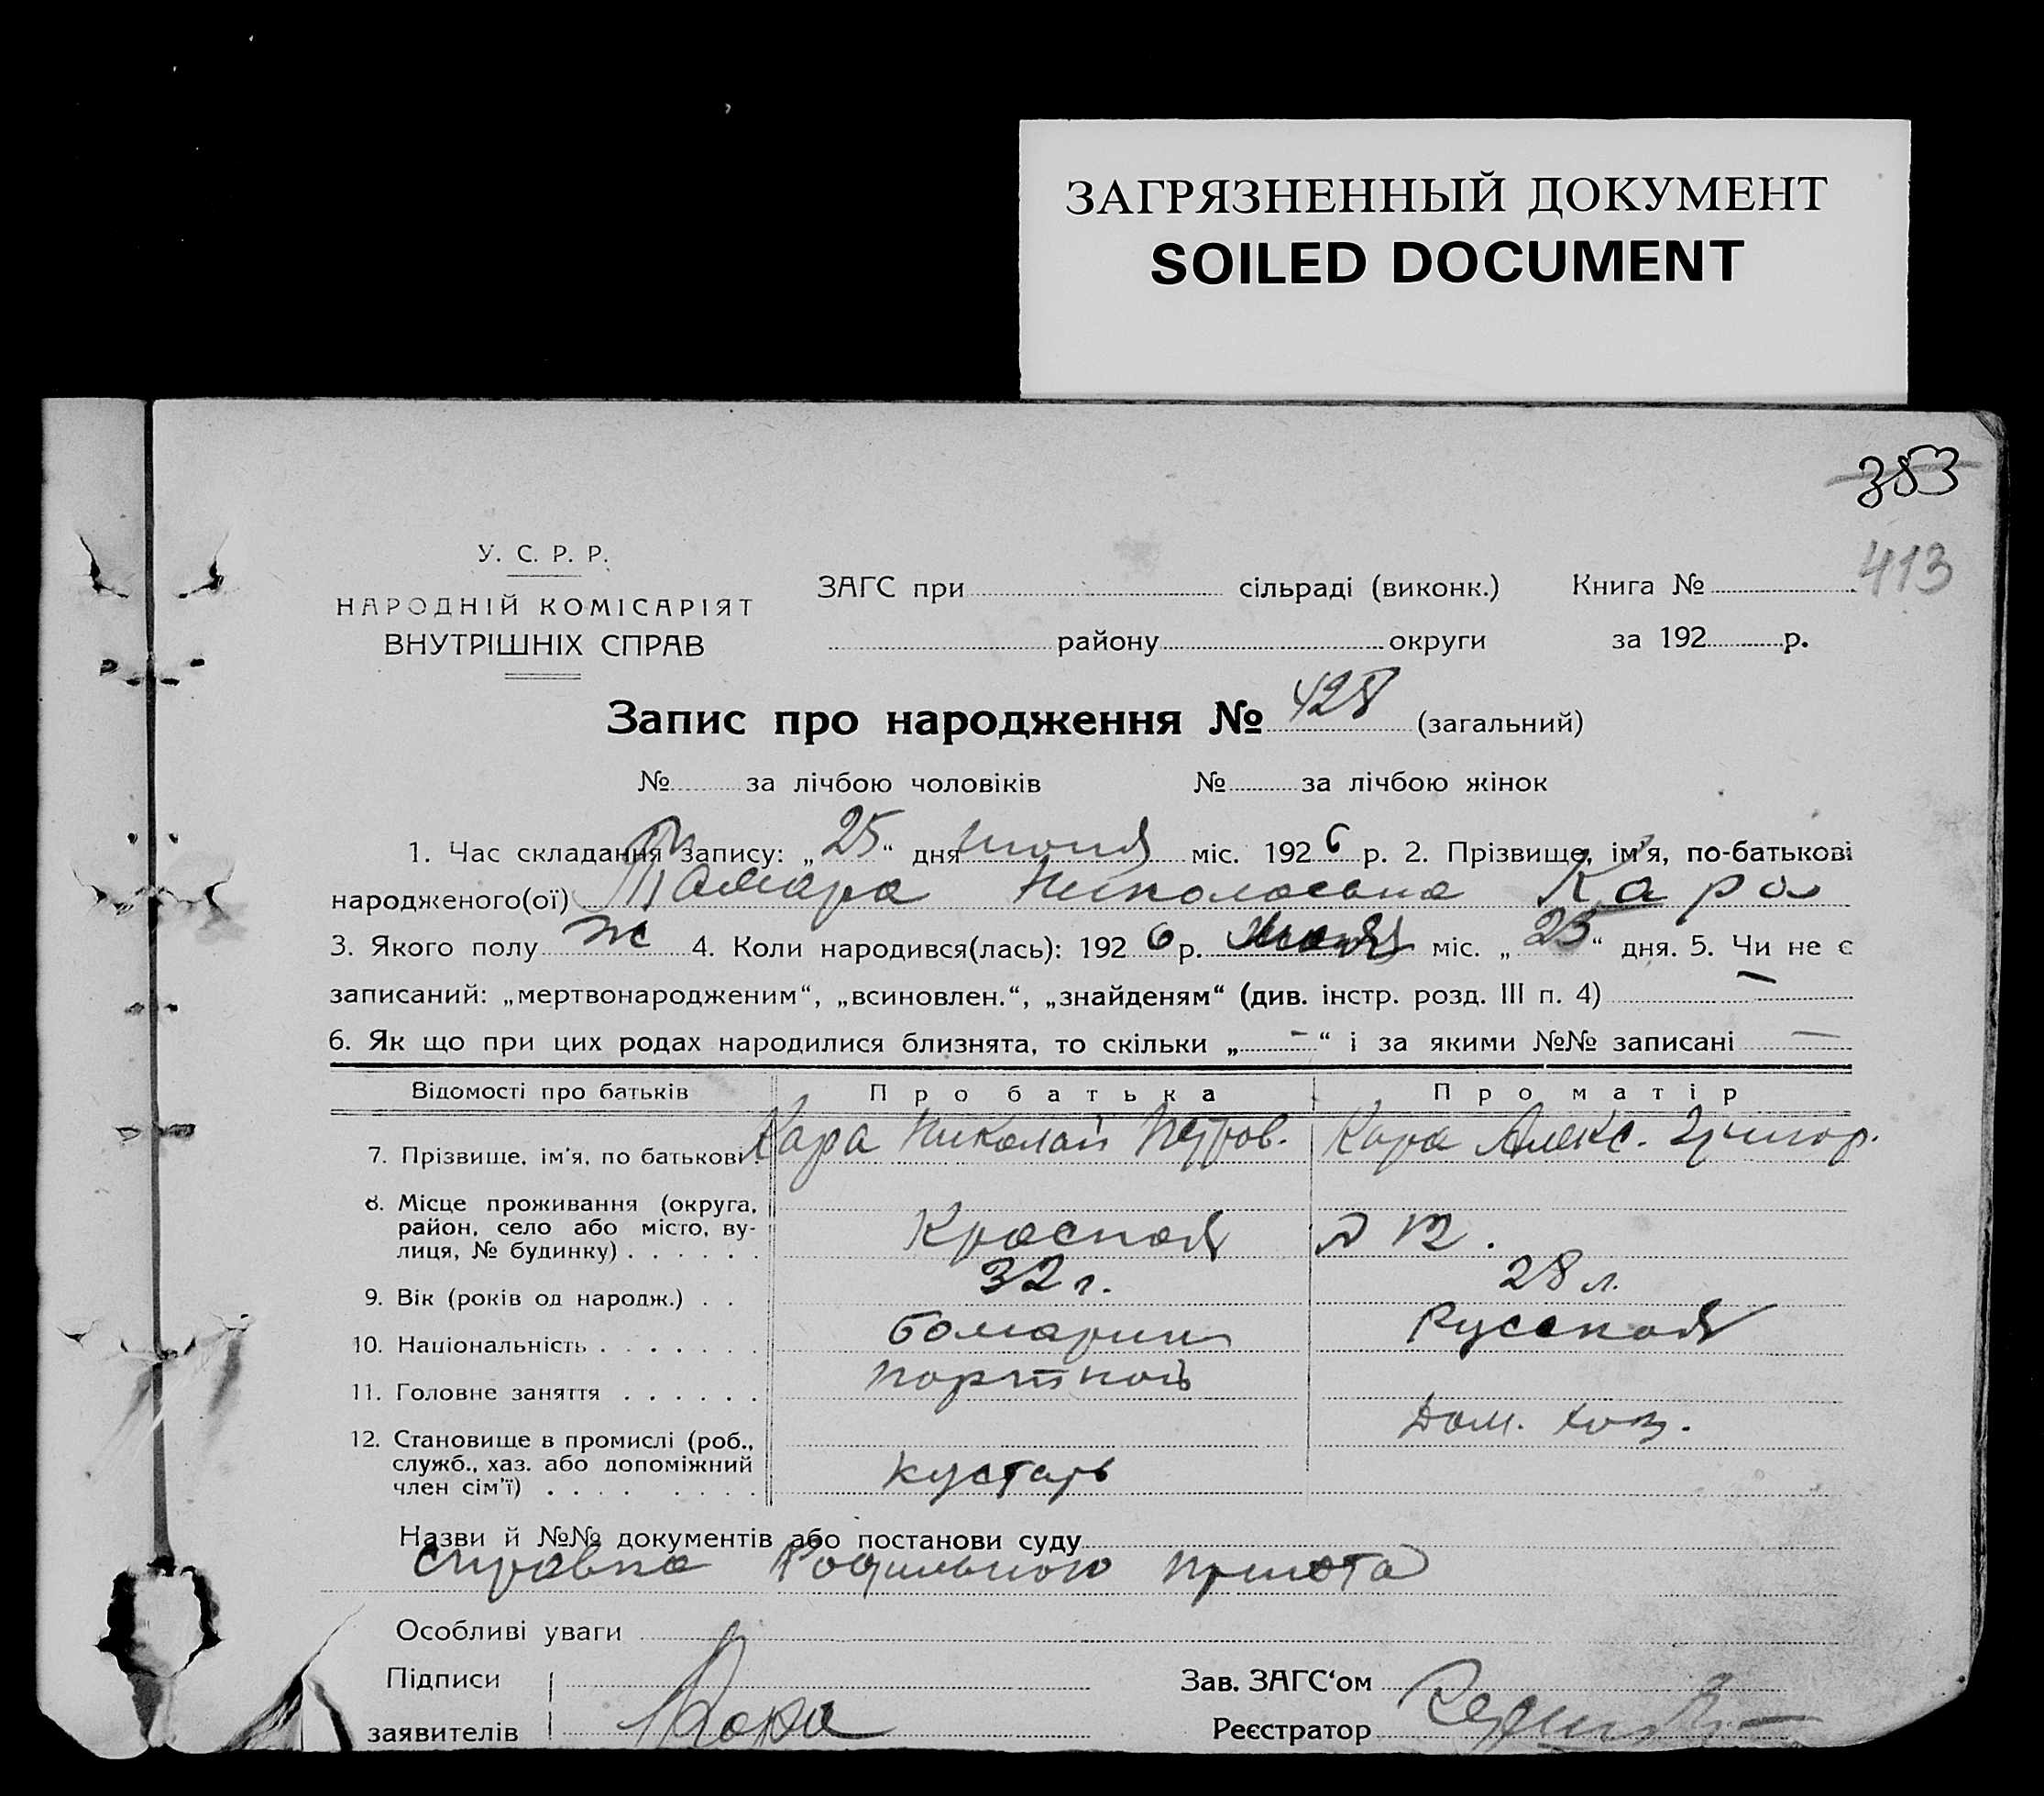 ЗАГРЯЗНЕННЫЙ ДОКУМЕНТ
SOILED DOCUMENT
353
413
У. С. Р. Р.
НАРОДНІЙ КОМІСАРІЯТ
ВНУТРІШНІХ СПРАВ
ЗАГС при сільраді (виконк.) Книга №
району округи за 192 р.
Запис про народження № 428 (загальний)
№ за лічбою чоловіків № за лічбою жінок
1. Час складання запису: „25“ дня июня міс. 1926 р. 2. Прізвище, ім'я, по-батькові
народженого(ої) Тамара Николаевна Кара
3. Якого полу ж 4. Коли народився(лась): 1926 р. міс. „25“ дня. 5. Чи не є
записаний: „мертвонародженим“, „всиновлен.“, „знайденям“ (див. інстр. розд. III п. 4) —
6. Як що при цих родах народилися близнята, то скільки „-“ і за якими №№ записані —
Відомості про батьків Про батька Про матір
7. Прізвище, ім'я, по батькові. Кара Николай Петров. Кара Алекс. Григор.
8. Місце проживання (округа,
район, село або місто, ву-
лиця, № будинку) . . . . . . Красная д 12.
9. Вік (років од народж.) . . 32 г. 28 л.
10. Національність . . . . . . . болгарин Русская
11. Головне заняття . . . . . . портной
Дом. хоз.
12. Становище в промислі (роб.,
служб., хаз. або допоміжний
член сім'ї) . . . . . . . . кустарь
Назви й №№ документів або постанови суду
справка Родильного приюта
Особливі уваги
Підписи Зав. ЗАГС'ом
заявителів Кара Реєстратор